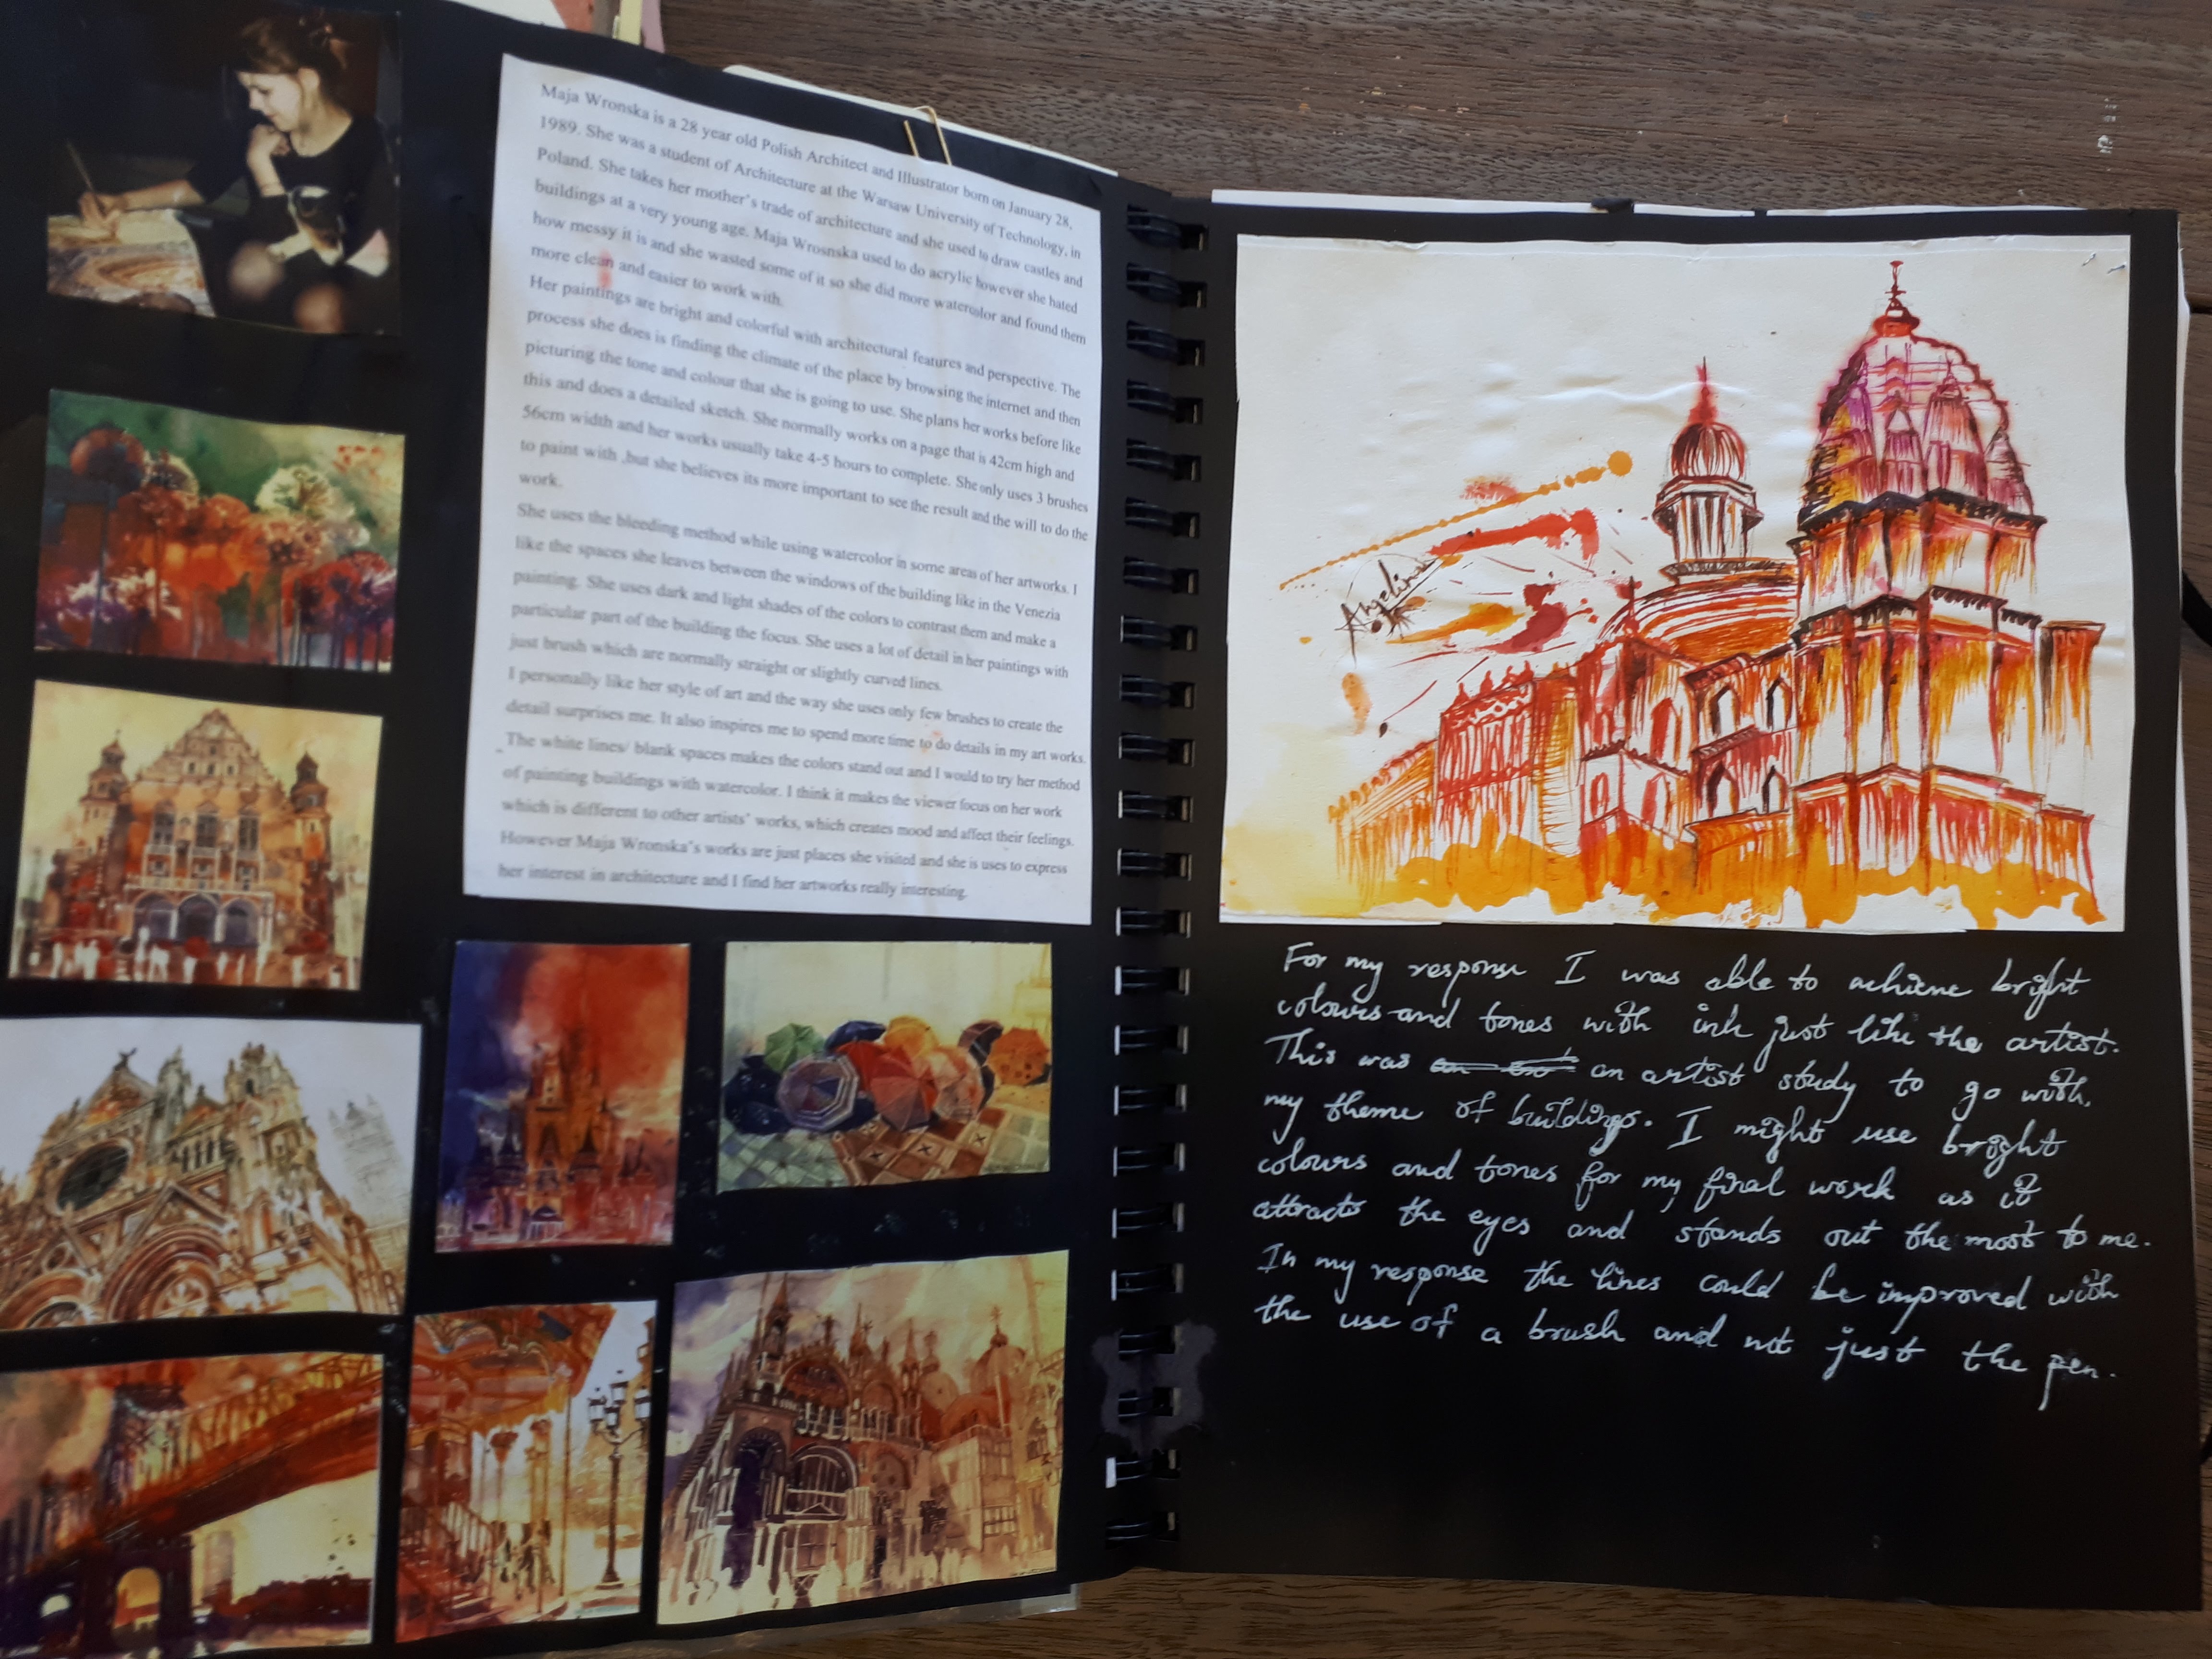 Maja Wronska is a 28 year old Polish Architect and Illustrator born on January 28,
1989. She was a student of Architecture at the Warsaw University of Technology, in
Poland. She takes her mother's trade of architecture and she used to draw castles and
buildings at a very young age. Maja Wrosnska used to do acrylic however she hated
how messy it is and she wasted some of it so she did more watercolor and found them
more clean and easier to work with.
Her paintings are bright and colorful with architectural features and perspective. The
process she does is finding the climate of the place by browsing the internet and then
picturing the tone and colour that she is going to use. She plans her works before like
this and does a detailed sketch. She normally works on a page that is 42cm high and
56cm width and her works usually take 4-5 hours to complete. She only uses 3 brushes
to paint with ,but she believes its more important to see the result and the will to do the
work.
She uses the bleeding method while using watercolor in some areas of her artworks. I
like the spaces she leaves between the windows of the building like in the Venezia
painting. She uses dark and light shades of the colors to contrast them and make a
particular part of the building the focus. She uses a lot of detail in her paintings with
just brush which are normally straight or slightly curved lines.
I personally like her style of art and the way she uses only few brushes to create the
detail surprises me. It also inspires me to spend more time to do details in my art works.
The white lines/ blank spaces makes the colors stand out and I would to try her method
of painting buildings with watercolor. I think it makes the viewer focus on her work
which is different to other artists' works, which creates mood and affect their feelings.
However Maja Wronska's works are just places she visited and she is uses to express
her interest in architecture and I find her artworks really interesting.
Angelina
For my response I was able to achieve bright
colours and tones with ink just like the artist.
This was an artist study to go with
my theme of buildings. I might use bright
colours and tones for my final work as it
attracts the eyes and stands out the most to me.
In my response the lines could be improved with
the use of a brush and not just the pen.